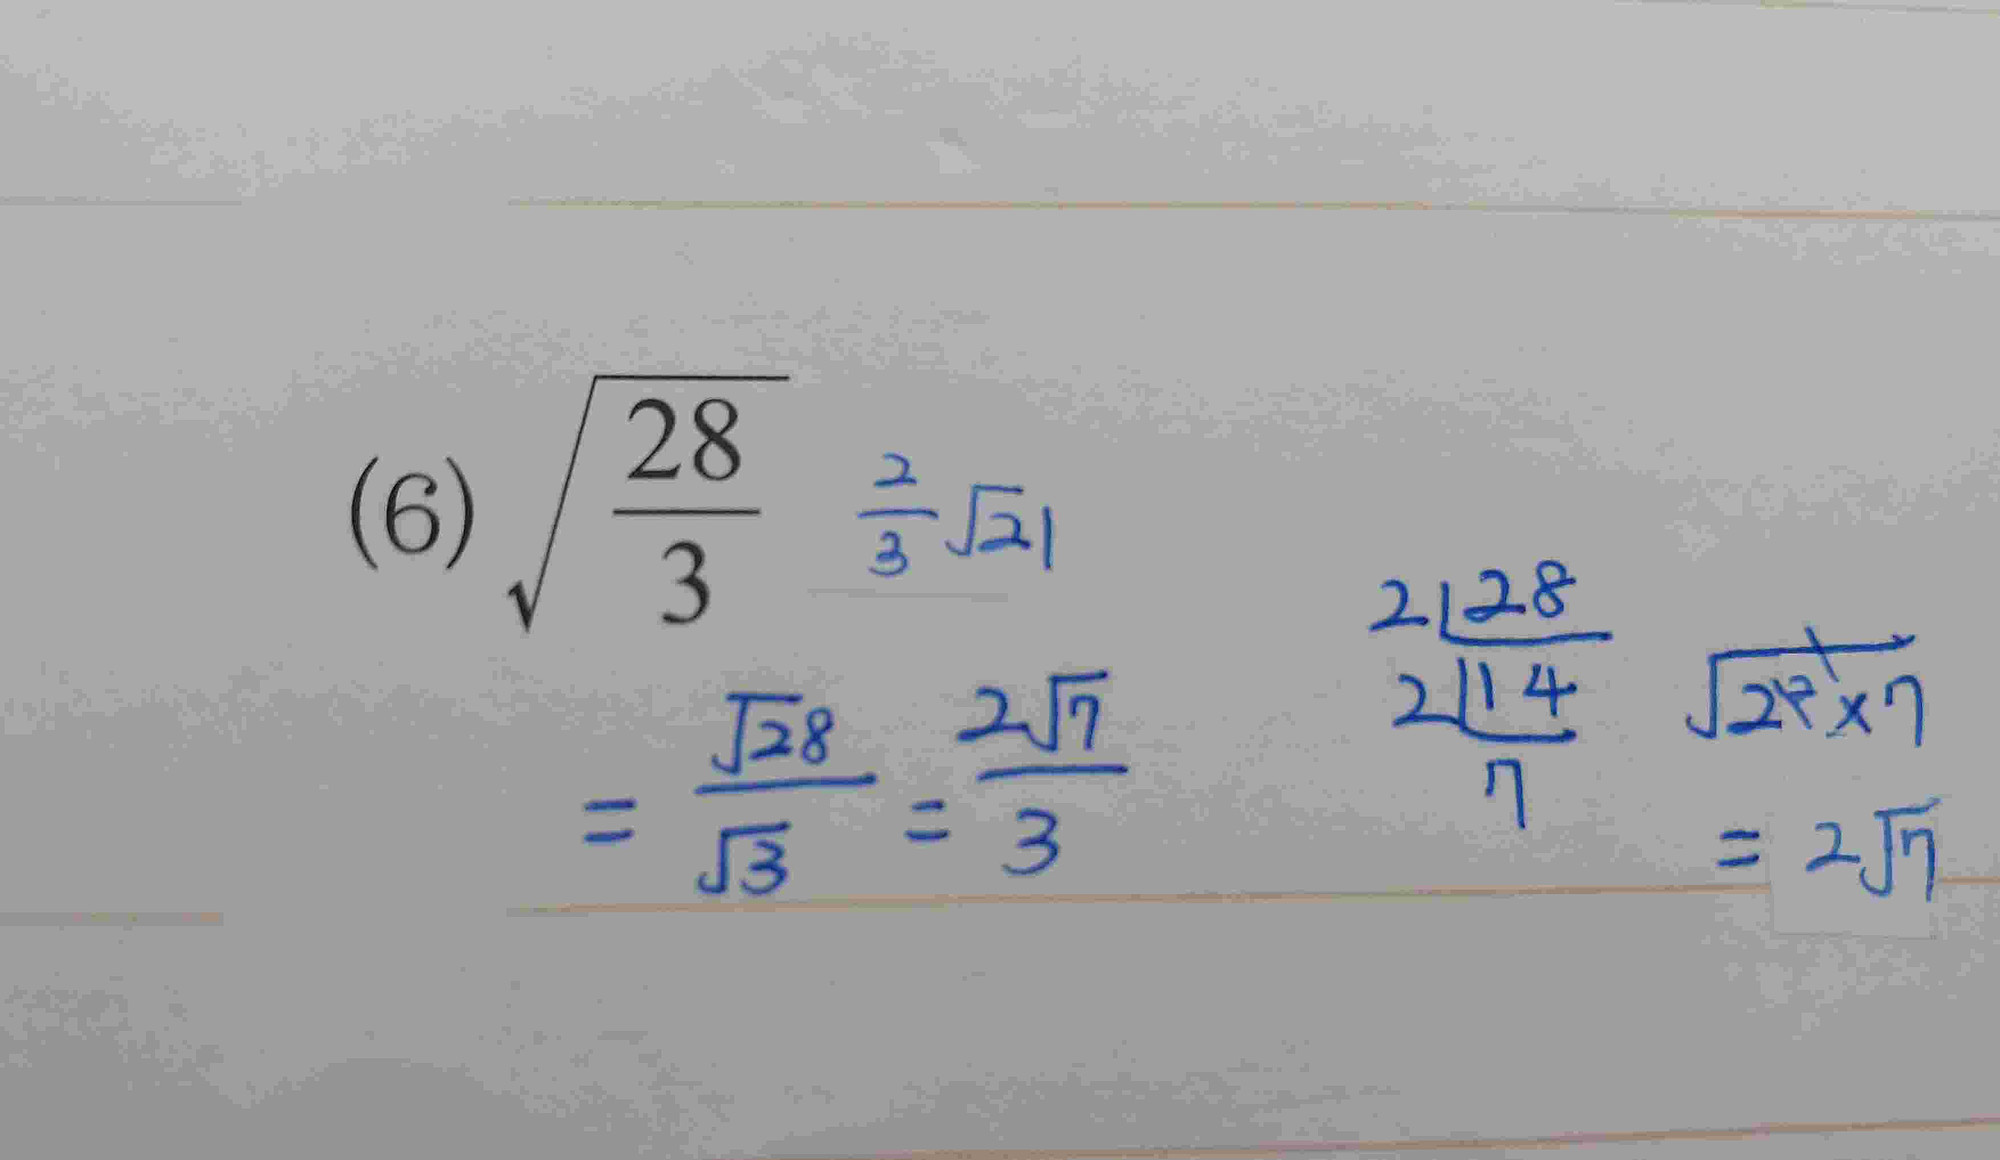 (6) √(28/3) 2/3 √21
= √28/√3 = 2√7/3
2 28
2 14 √2²×7
7
= 2√7